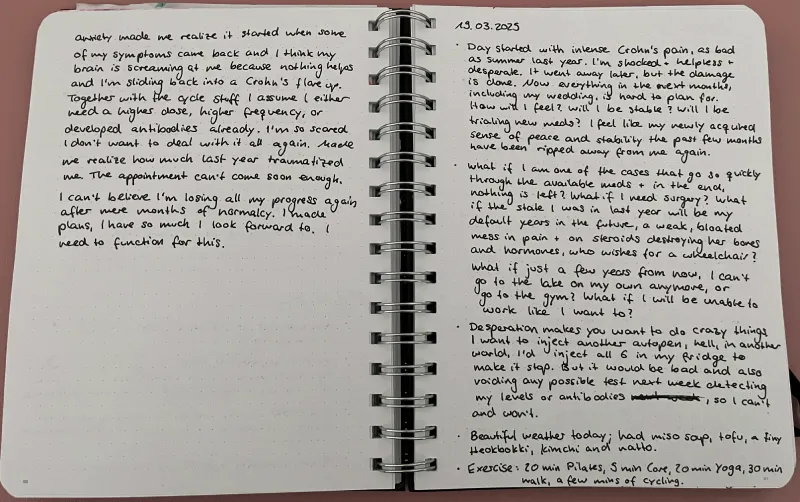 anxiety made me realize it started when some
of my symptoms came back and I think my
brain is screaming at me because nothing helps
and I'm sliding back into a Crohn's flare up.
Together with the cycle stuff I assume I either
need a higher dose, higher frequency, or
developed antibodies already. I'm so scared
I don't want to deal with it all again. Made
me realize how much last year traumatized
me. The appointment can't come soon enough.
I can't believe I'm losing all my progress again
after mere months of normalcy. I made
plans, I have so much I look forward to. I
need to function for this.
19.03.2025
• Day started with intense Crohn's pain, as bad
as summer last year. I'm shocked + helpless +
desperate. It went away later, but the damage
is done. Now everything in the next months,
including my wedding, is hard to plan for.
How will I feel? Will I be stable? Will I be
trialing new meds? I feel like my newly acquired
sense of peace and stability the past few months
have been ripped away from me again.
• What if I am one of the cases that go so quickly
through the available meds + in the end,
nothing is left? What if I need surgery? What
if the state I was in last year will be my
default years in the future, a weak, bloated
mess in pain + on steroids destroying her bones
and hormones, who wishes for a wheelchair?
What if just a few years from now, I can't
go to the lake on my own anymore, or
go to the gym? What if I will be unable to
work like I want to?
• Desperation makes you want to do crazy things
I want to inject another autopen, hell, in another
world, I'd inject all 6 in my fridge to
make it stop. But it would be bad and also
voiding any possible test next week detecting
my levels or antibodies next week, so I can't
and won't.
• Beautiful weather today; had miso soup, tofu, a tiny
tteokbokki, kimchi and natto.
• Exercise: 20 min Pilates, 5 min Core, 20 min Yoga, 30 min
walk, a few mins of cycling.